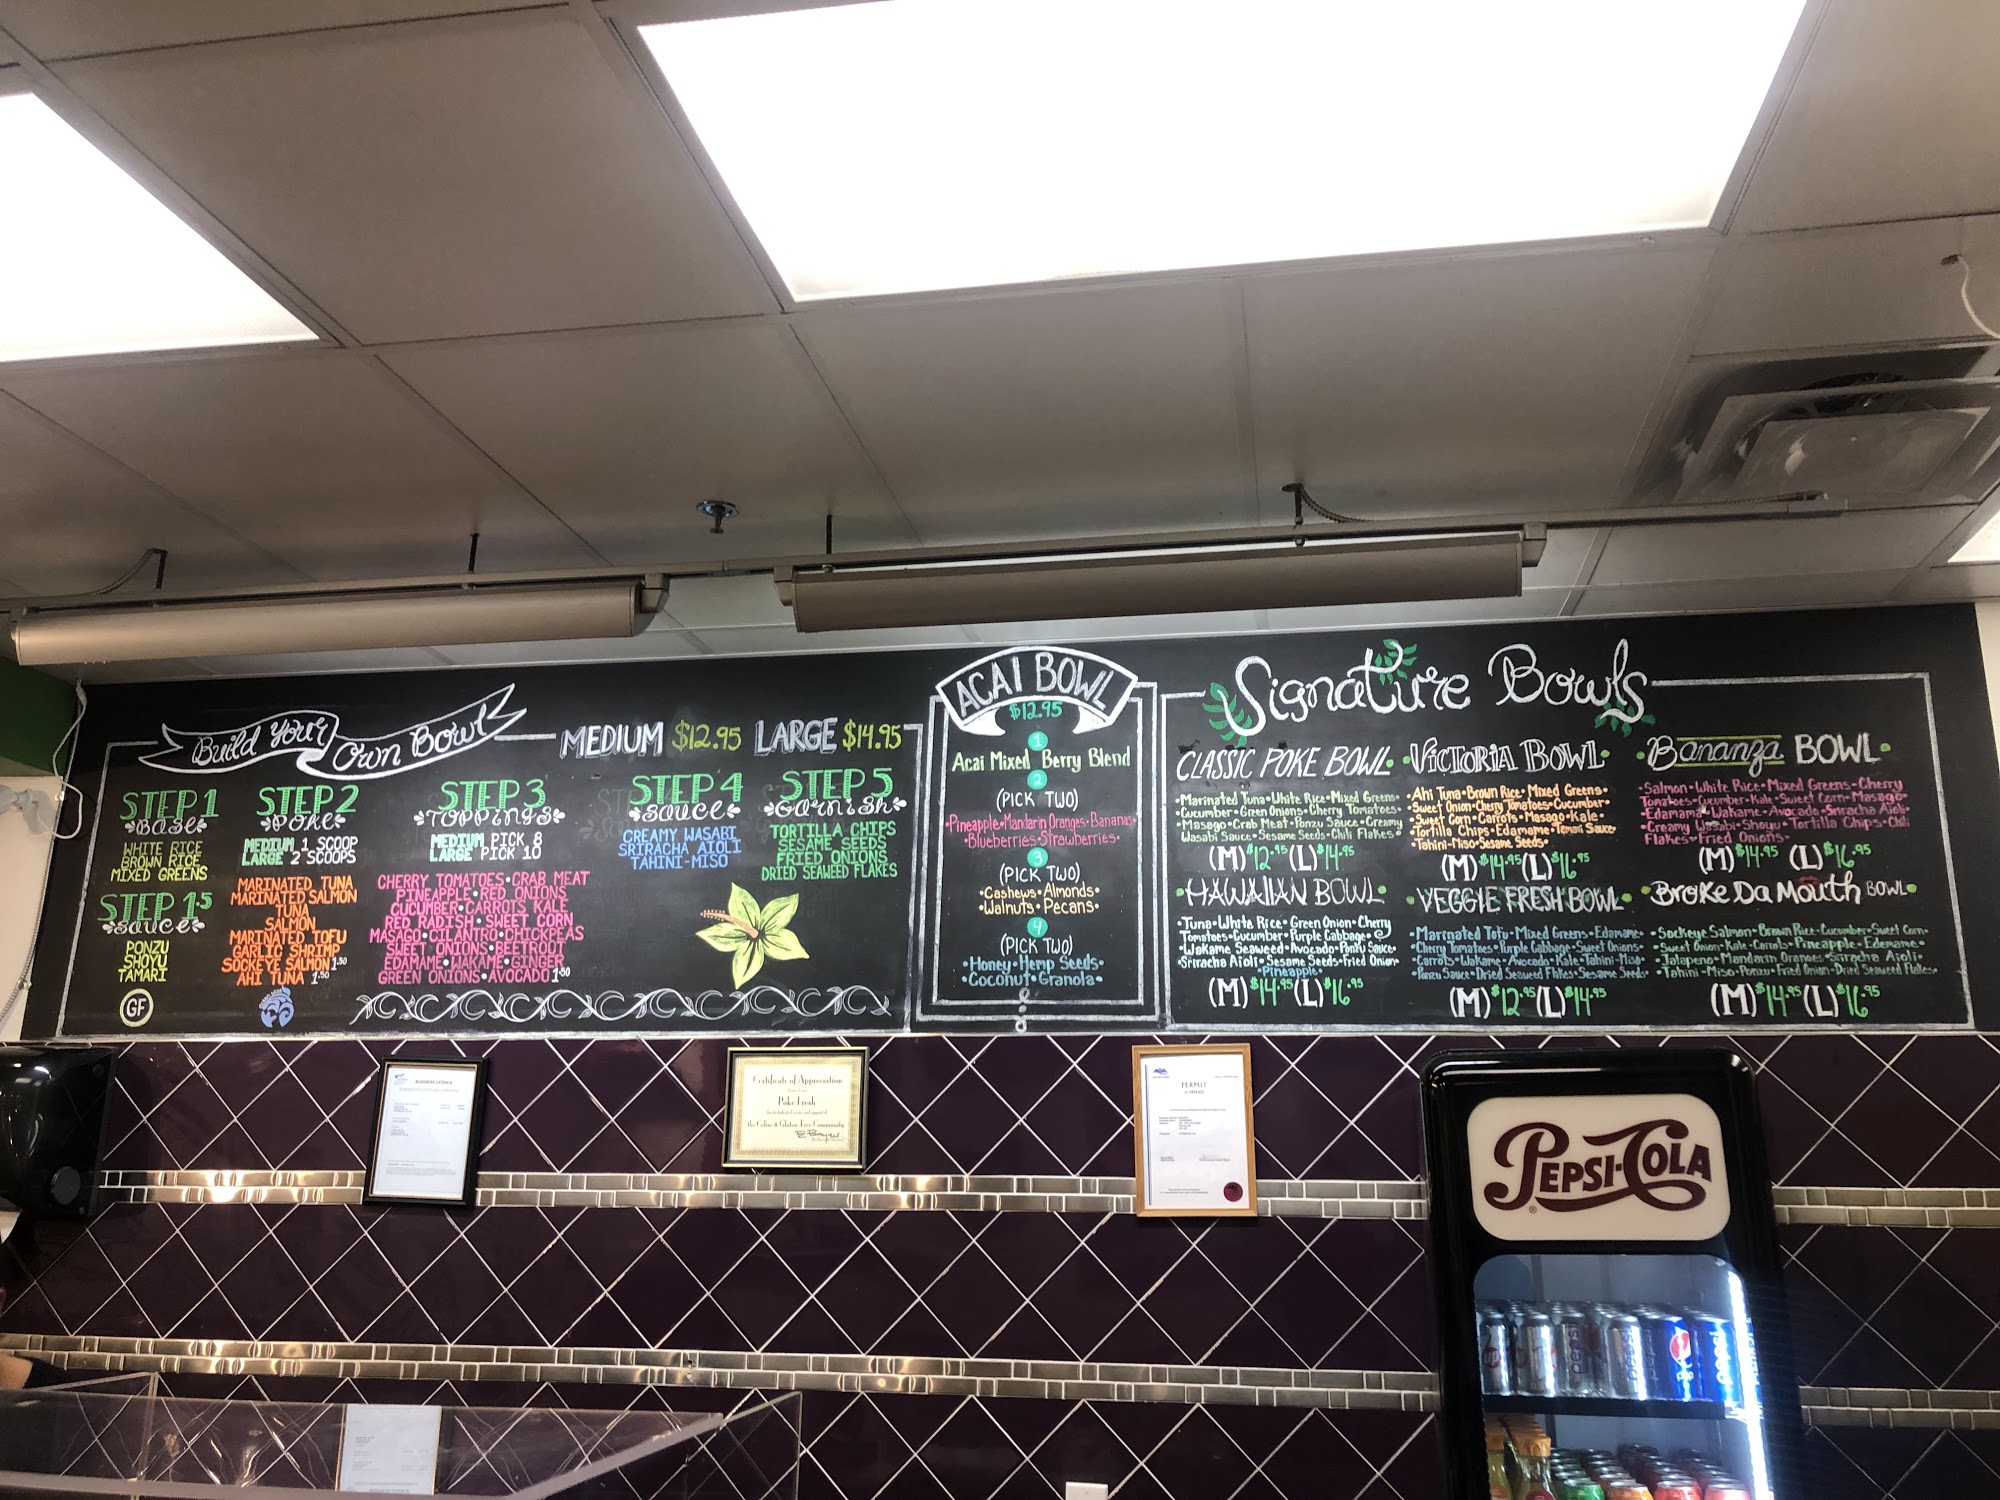 Build Your Own Bowl
MEDIUM $12.95 LARGE $14.95
STEP 1
BASE
WHITE RICE
BROWN RICE
MIXED GREENS
STEP 1.5
SAUCE
PONZU
SHOYU
TAMARI
GF
STEP 2
POKE
MEDIUM 1 SCOOP
LARGE 2 SCOOPS
MARINATED TUNA
MARINATED SALMON
TUNA
SALMON
MARINATED TOFU
GARLIC SHRIMP
SOCKEYE SALMON 1.50
AHI TUNA 1.50
STEP 3
TOPPINGS
MEDIUM PICK 8
LARGE PICK 10
CHERRY TOMATOES • CRAB MEAT
PINEAPPLE • RED ONIONS
CUCUMBER • CARROTS KALE
RED RADISH • SWEET CORN
MASAGO • CILANTRO • CHICKPEAS
SWEET ONIONS • BEETROOT
EDAMAME • WAKAME • GINGER
GREEN ONIONS • AVOCADO 1.50
STEP 4
SAUCE
CREAMY WASABI
SRIRACHA AIOLI
TAHINI-MISO
STEP 5
GARNISH
TORTILLA CHIPS
SESAME SEEDS
FRIED ONIONS
DRIED SEAWEED FLAKES
ACAI BOWL
$12.95
1
Acai Mixed Berry Blend
2
(PICK TWO)
•Pineapple•Mandarin Oranges•Bananas
•Blueberries•Strawberries•
3
(PICK TWO)
•Cashews•Almonds•
•Walnuts•Pecans•
4
(PICK TWO)
•Honey•Hemp Seeds•
•Coconut•Granola•
Signature Bowls
CLASSIC POKE BOWL•
•Marinated Tuna•White Rice•Mixed Greens•
Cucumber•Green Onions•Cherry Tomatoes•
Masago•Crab Meat•Ponzu Sauce•Creamy
Wasabi Sauce•Sesame Seeds•Chili Flakes•
(M)$12.95 (L)$14.95
VICTORIA BOWL•
•Ahi Tuna•Brown Rice•Mixed Greens•
•Sweet Onion•Cherry Tomatoes•Cucumber
•Sweet Corn•Carrots•Masago•Kale•
•Tortilla Chips•Edamame•Tamari Sauce
•Tahini-Miso•Sesame Seeds•
(M)$14.95 (L)$16.95
Bananza BOWL•
•Salmon•White Rice•Mixed Greens•Cherry
Tomatoes•Cucumber•Kale•Sweet Corn•Masago
•Edamame•Wakame•Avocado•Sriracha Aioli
•Creamy Wasabi•Shoyu•Tortilla Chips•Chili
Flakes•Fried Onions•
(M)$14.95 (L)$16.95
HAWAIIAN BOWL•
•Tuna•White Rice•Green Onion•Cherry
Tomatoes•Cucumber•Purple Cabbage•
Wakame Seaweed•Avocado•Ponzu Sauce•
•Sriracha Aioli•Sesame Seeds•Fried Onion•
•Pineapple•
(M)$14.95 (L)$16.95
•VEGGIE FRESH BOWL•
•Marinated Tofu•Mixed Greens•Edamame
•Cherry Tomatoes•Purple Cabbage•Sweet Onions
•Carrots•Wakame•Avocado•Kale•Tahini-Miso
•Ponzu Sauce•Dried Seaweed Flakes•Sesame Seeds•
(M)$12.95 (L)$14.95
•Broke Da Mouth BOWL•
•Sockeye Salmon•Brown Rice•Cucumber•Sweet Corn•
•Sweet Onion•Kale•Carrots•Pineapple•Edemame•
•Jalapeno•Mandarin Oranges•Sriracha Aioli•
•Tahini-Miso•Ponzu•Fried Onion•Dried Seaweed Flakes•
(M)$14.95 (L)$16.95
BUSINESS LICENCE
Certificate of Appreciation
Poke Fresh
the Celiac & Gluten Free Community
PERMIT
PEPSI-COLA
®
pepsi
pepsi